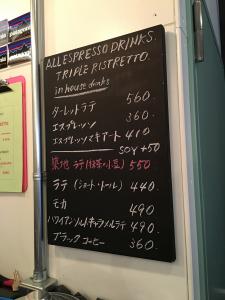 ALL ESPRESSO DRINKS.
TRIPLE RISTRETTO.
in house drinks
ターレットラテ 560.
エスプレッソ 360.
エスプレッソマキアート 410
SOY +50
築地 ラテ (抹茶+小豆) 550
ラテ (ショート・トール) 440.
モカ 490
ハワイアンソルトキャラメルラテ 490.
ブラックコーヒー 360.